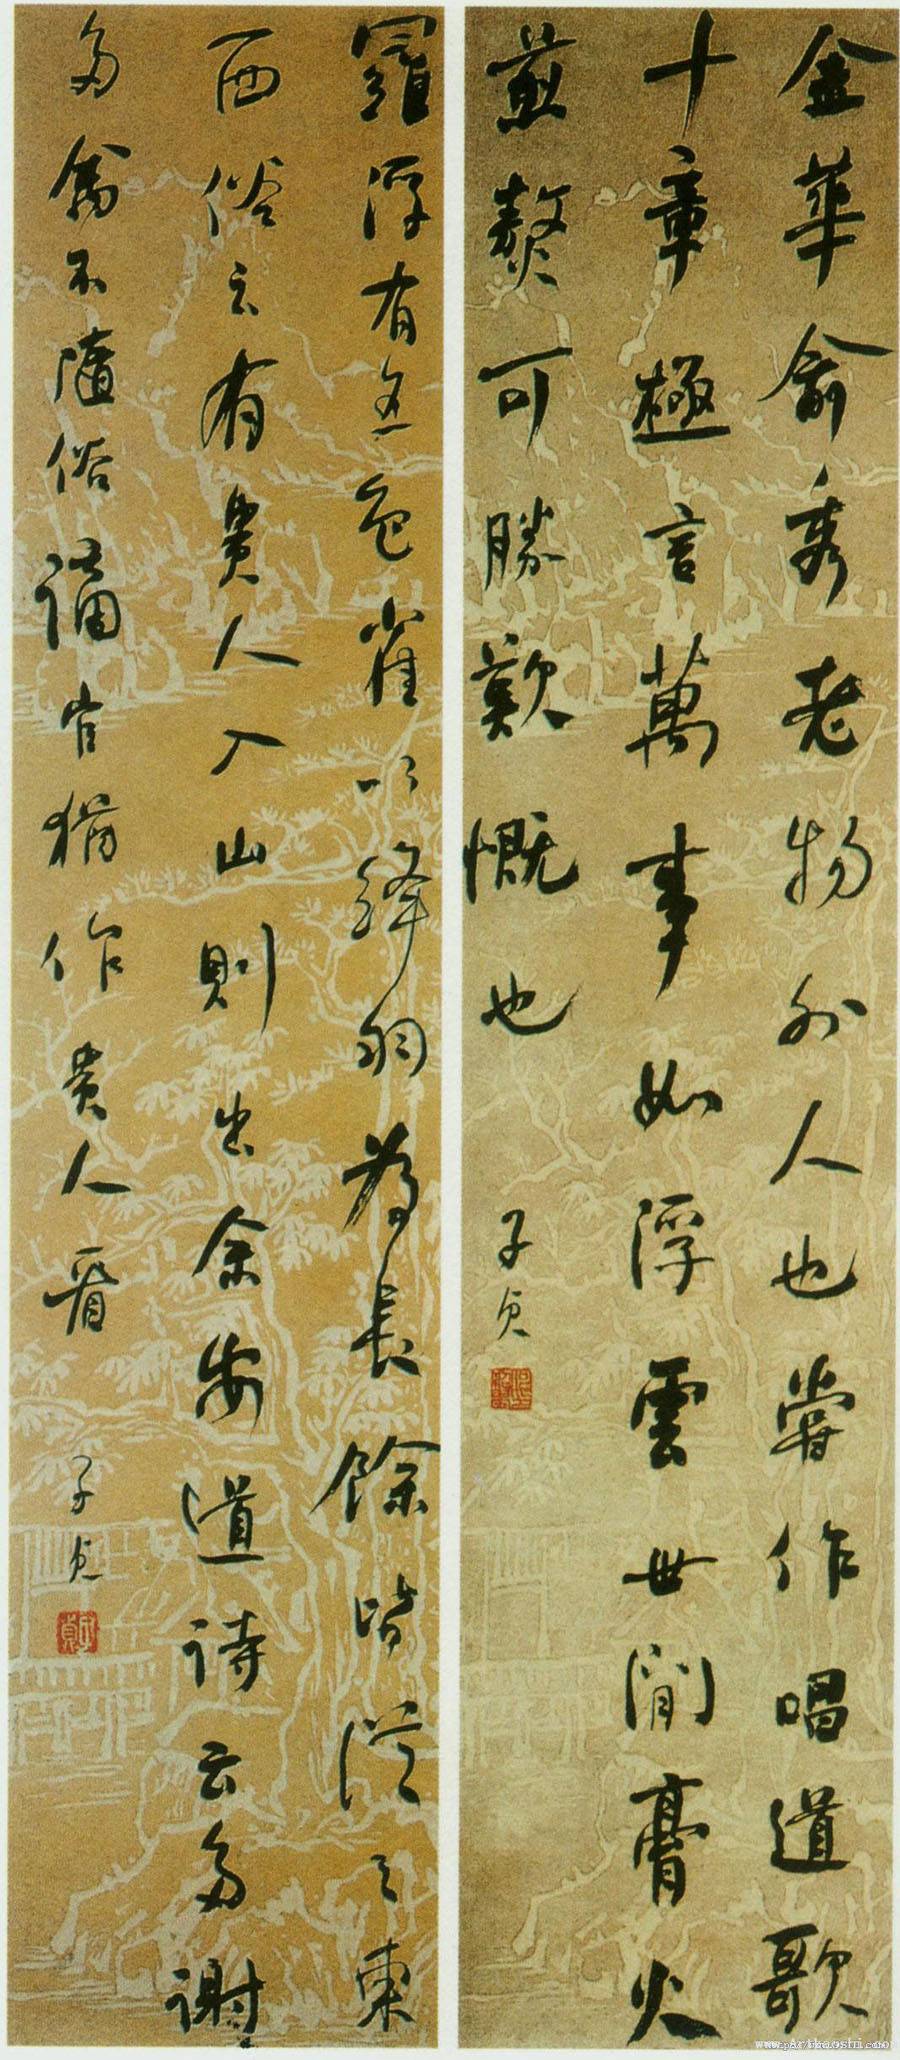 金華俞秀老物外人也嘗作唱道歌
十章極言萬事如浮雲世閒膏火
煎熬可勝歎慨也
子貞
羅浮有五色雀以絳羽為長餘皆從之東
西俗云有貴人入山則出余安道詩云多謝
多禽不隨俗謫官猶作貴人看
子貞
子貞